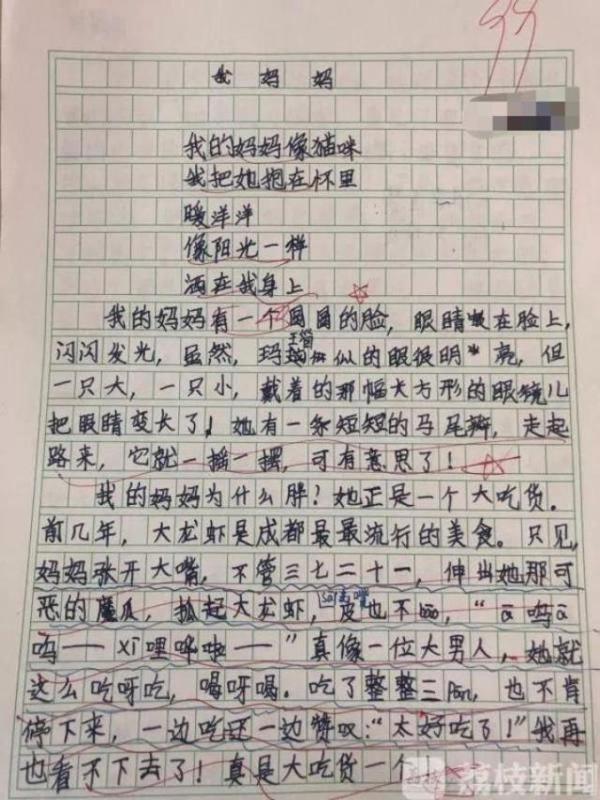 99
我妈妈
我的妈妈像猫咪
我把她抱在怀里
暖洋洋
像阳光一样
洒在我身上
我的妈妈有一个圆圆的脸，眼睛在脸上，
闪闪发光，虽然，玛瑙似的眼很明亮，但
一只大，一只小，戴着的那幅大方形的眼镜儿
把眼睛变长了！她有一条短短的马尾辫，走起
路来，它就一摇一摆，可有意思了！
我的妈妈为什么胖？她正是一个大吃货。
前几年，大龙虾是成都最最流行的美食。只见，
妈妈张开大嘴，不管三七二十一，伸出她那可
恶的魔爪，抓起大龙虾，皮也不bāo，“ā呜ā
呜——xī哩哗啦——”真像一位大男人，她就
这么吃呀吃，喝呀喝。吃了整整三pén，也不肯
停下来，一边吃还一边赞叹：“太好吃了！”我再
也看不下去了！真是大吃货一个
荔枝新闻